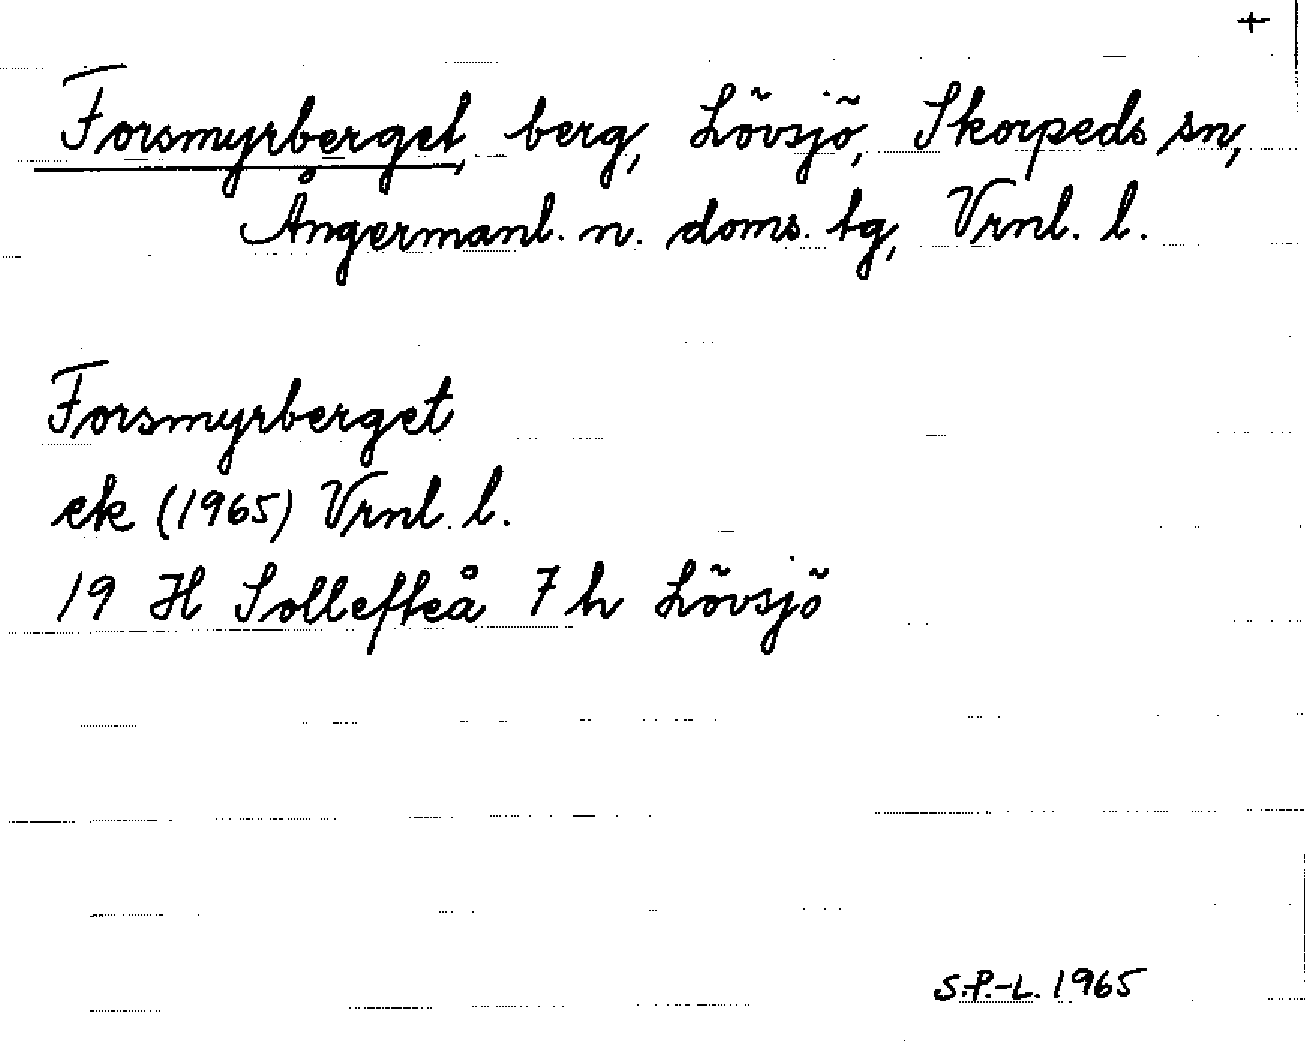 +
Forsmyrberget, berg, Lövsjö, Skorpeds sn,
Ångermanl. n. doms. tg, Vrnl. l.
Forsmyrberget
ek (1965) Vrnl. l.
19 H Sollefteå 7 h Lövsjö
S.P.-L. 1965